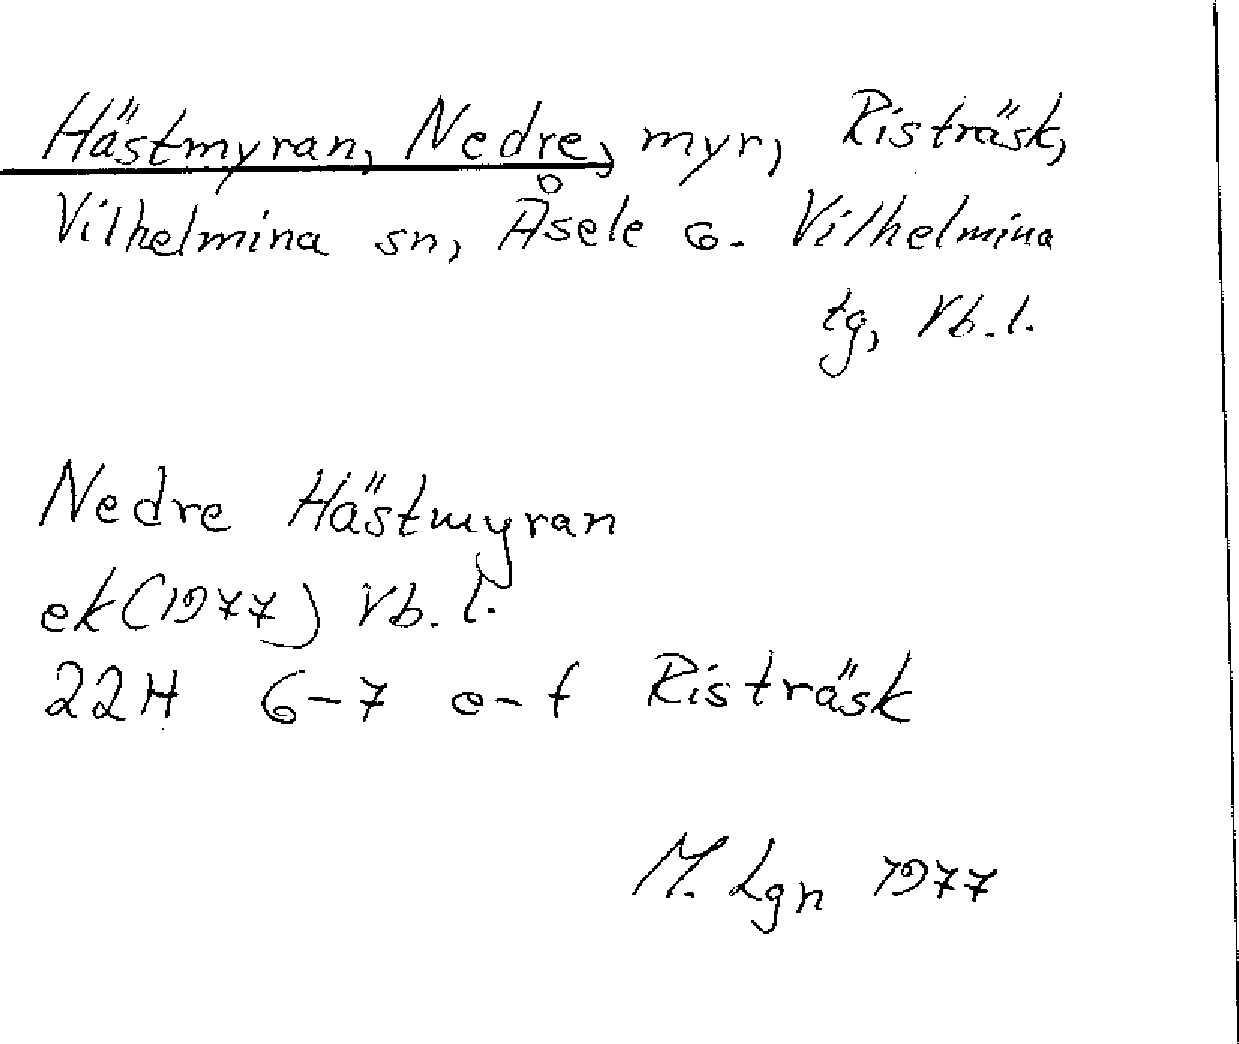 Hästmyran, Nedre, myr, Risträsk,
Vilhelmina sn, Åsele o. Vilhelmina
tg, Vb. l.
Nedre Hästmyran
ek (1977) Vb. l.
22H 6-7 e-f Risträsk
M. Lgn 1977